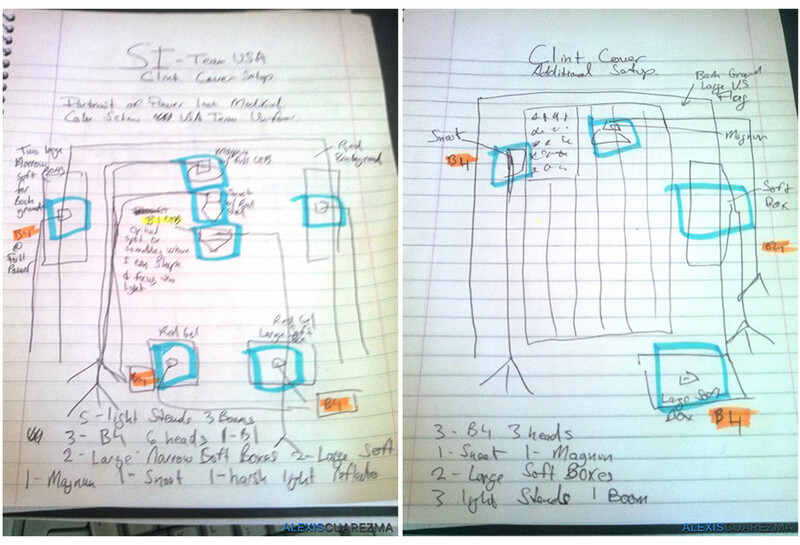 SI - Team USA
Clint Cover Setup
Portrait of Flower look Modified
Color Scheme USA Team Uniform
Two Large
Narrow
Soft
Boxes
for
Back
ground
B4
@
Full
Power
Magnum
Full CTB
Snoot
w/ Red
Gel
Red
Background
B1 CTB
Optical
Spot or
Something where
I can Shape
& focus the
light
Red Gel
B4
Red Gel
Large Soft
Box
B4
5 - light Stands 3 Booms
3 - B4 6 heads 1 - B1
2 - Large Narrow Soft Boxes 2 - Large Soft
1 - Magnum 1 - Snoot 1 - harsh light reflector
ALEXISCUAREZMA
Clint Cover
Additional Setup
Back Ground
Large US
Flag
Snoot
B4
Magnum
Soft
Box
B4
Large Soft
Box
B4
3 - B4 3 heads
1 - Snoot 1 - Magnum
2 - Large Soft Boxes
3 light Stands 1 Boom
ALEXISCUAREZMA